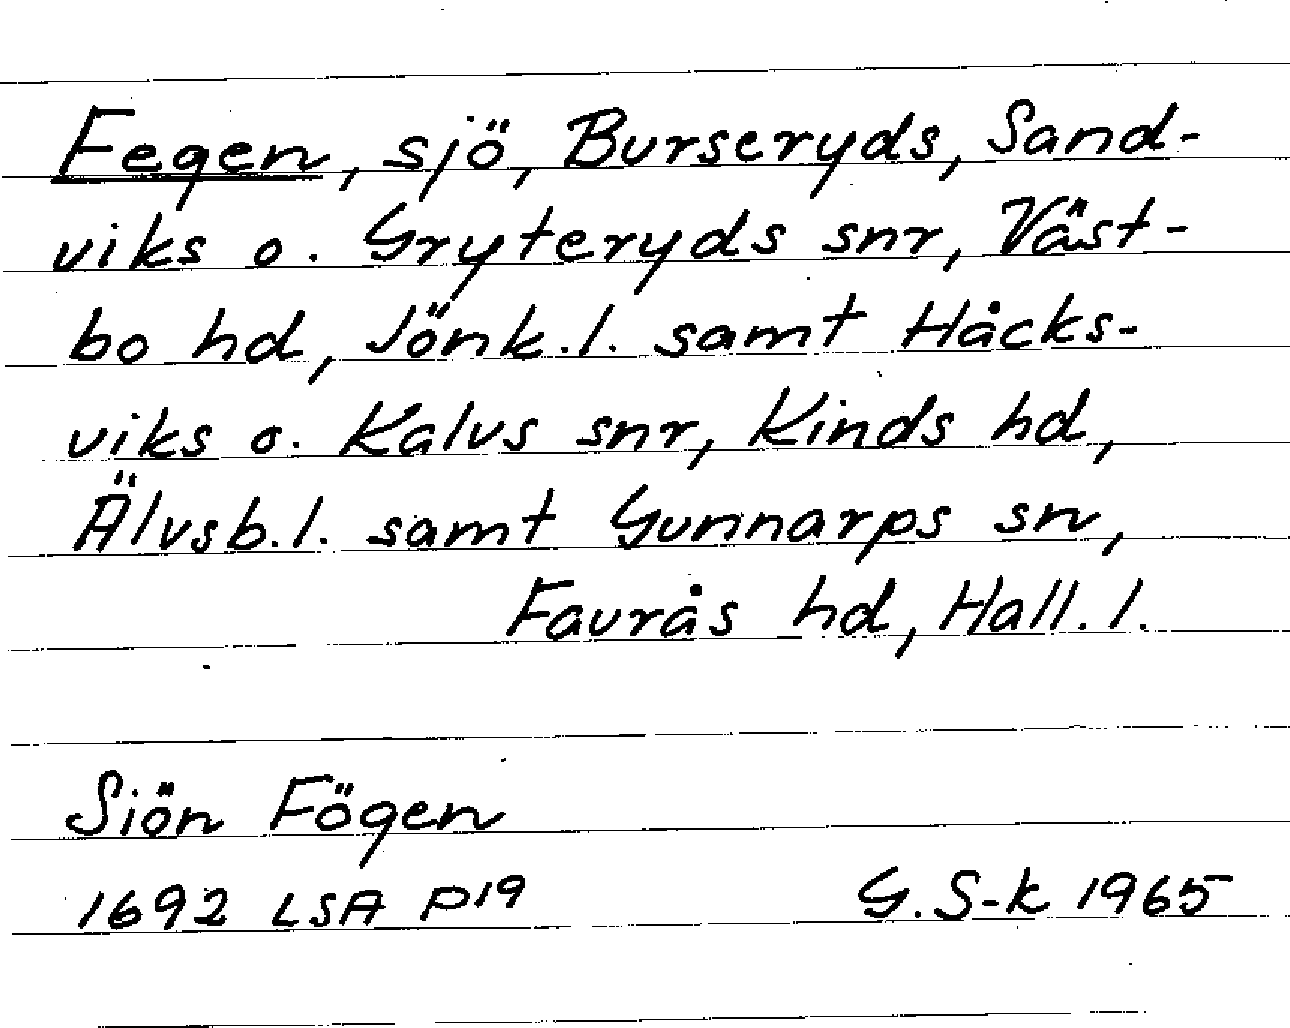 Fegen, sjö, Burseryds, Sand-
viks o. Gryteryds snr, Väst-
bo hd, Jönk.l. samt Håcks-
viks o. Kalvs snr, Kinds hd,
Älvsb.l. samt Gunnarps sn,
Faurås hd, Hall.l.
Siön Fögen
1692 LSA P19
G.S-k 1965